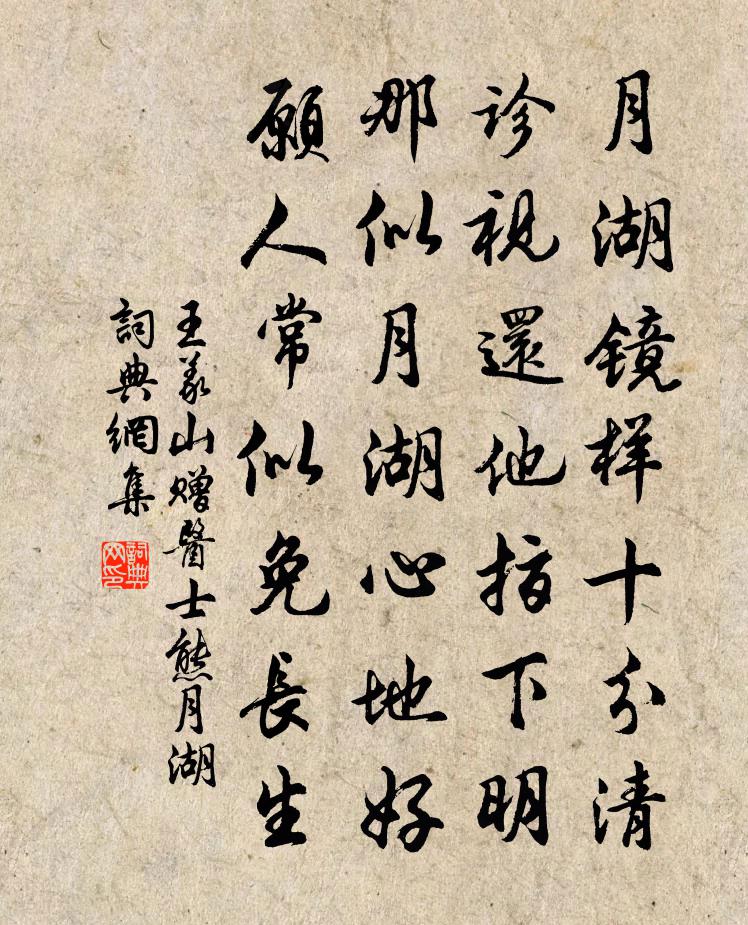 月湖镜样十分清
診視還他指下明
那似月湖心地好
願人常似免長生
王義山贈醫士熊月湖
詞典網集
詞典网印